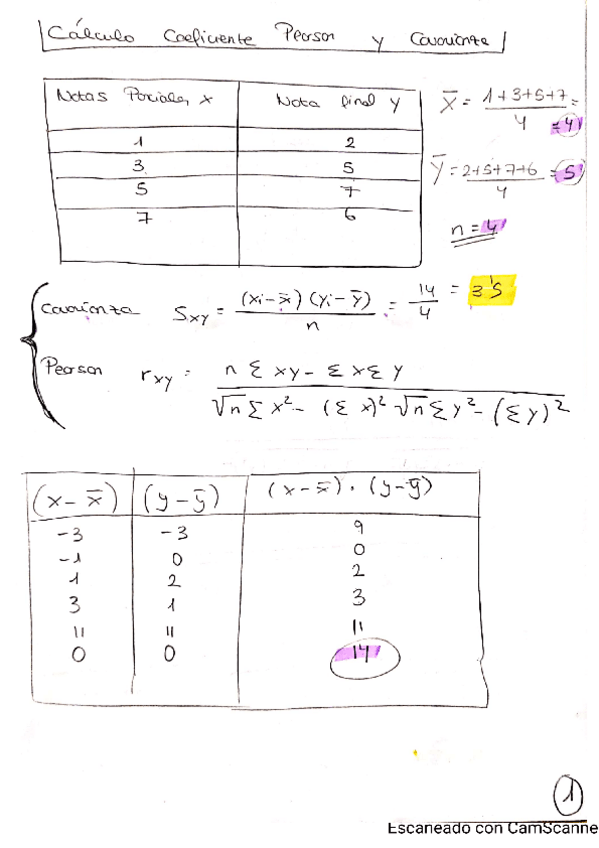 Cálculo Coeficiente Pearson y Covarianza
Notas Parciales x Nota final y
1 2
3 5
5 7
7 6
X̄ = 1+3+5+7 / 4 = = 4
Ȳ = 2+5+7+6 / 4 = 5
n = 4
Covarianza Sxy = (xi - x̄) (yi - ȳ) / n = 14 / 4 = 3'5
Pearson rxy = n Σ xy - Σ x Σ y / √n Σ x² - (Σ x)² √n Σ y² - (Σ y)²
(x - x̄) (y - ȳ) (x - x̄) · (y - ȳ)
-3 -3 9
-1 0 0
1 2 2
3 1 3
11 11 11
0 0 14
1
Escaneado con CamScanne